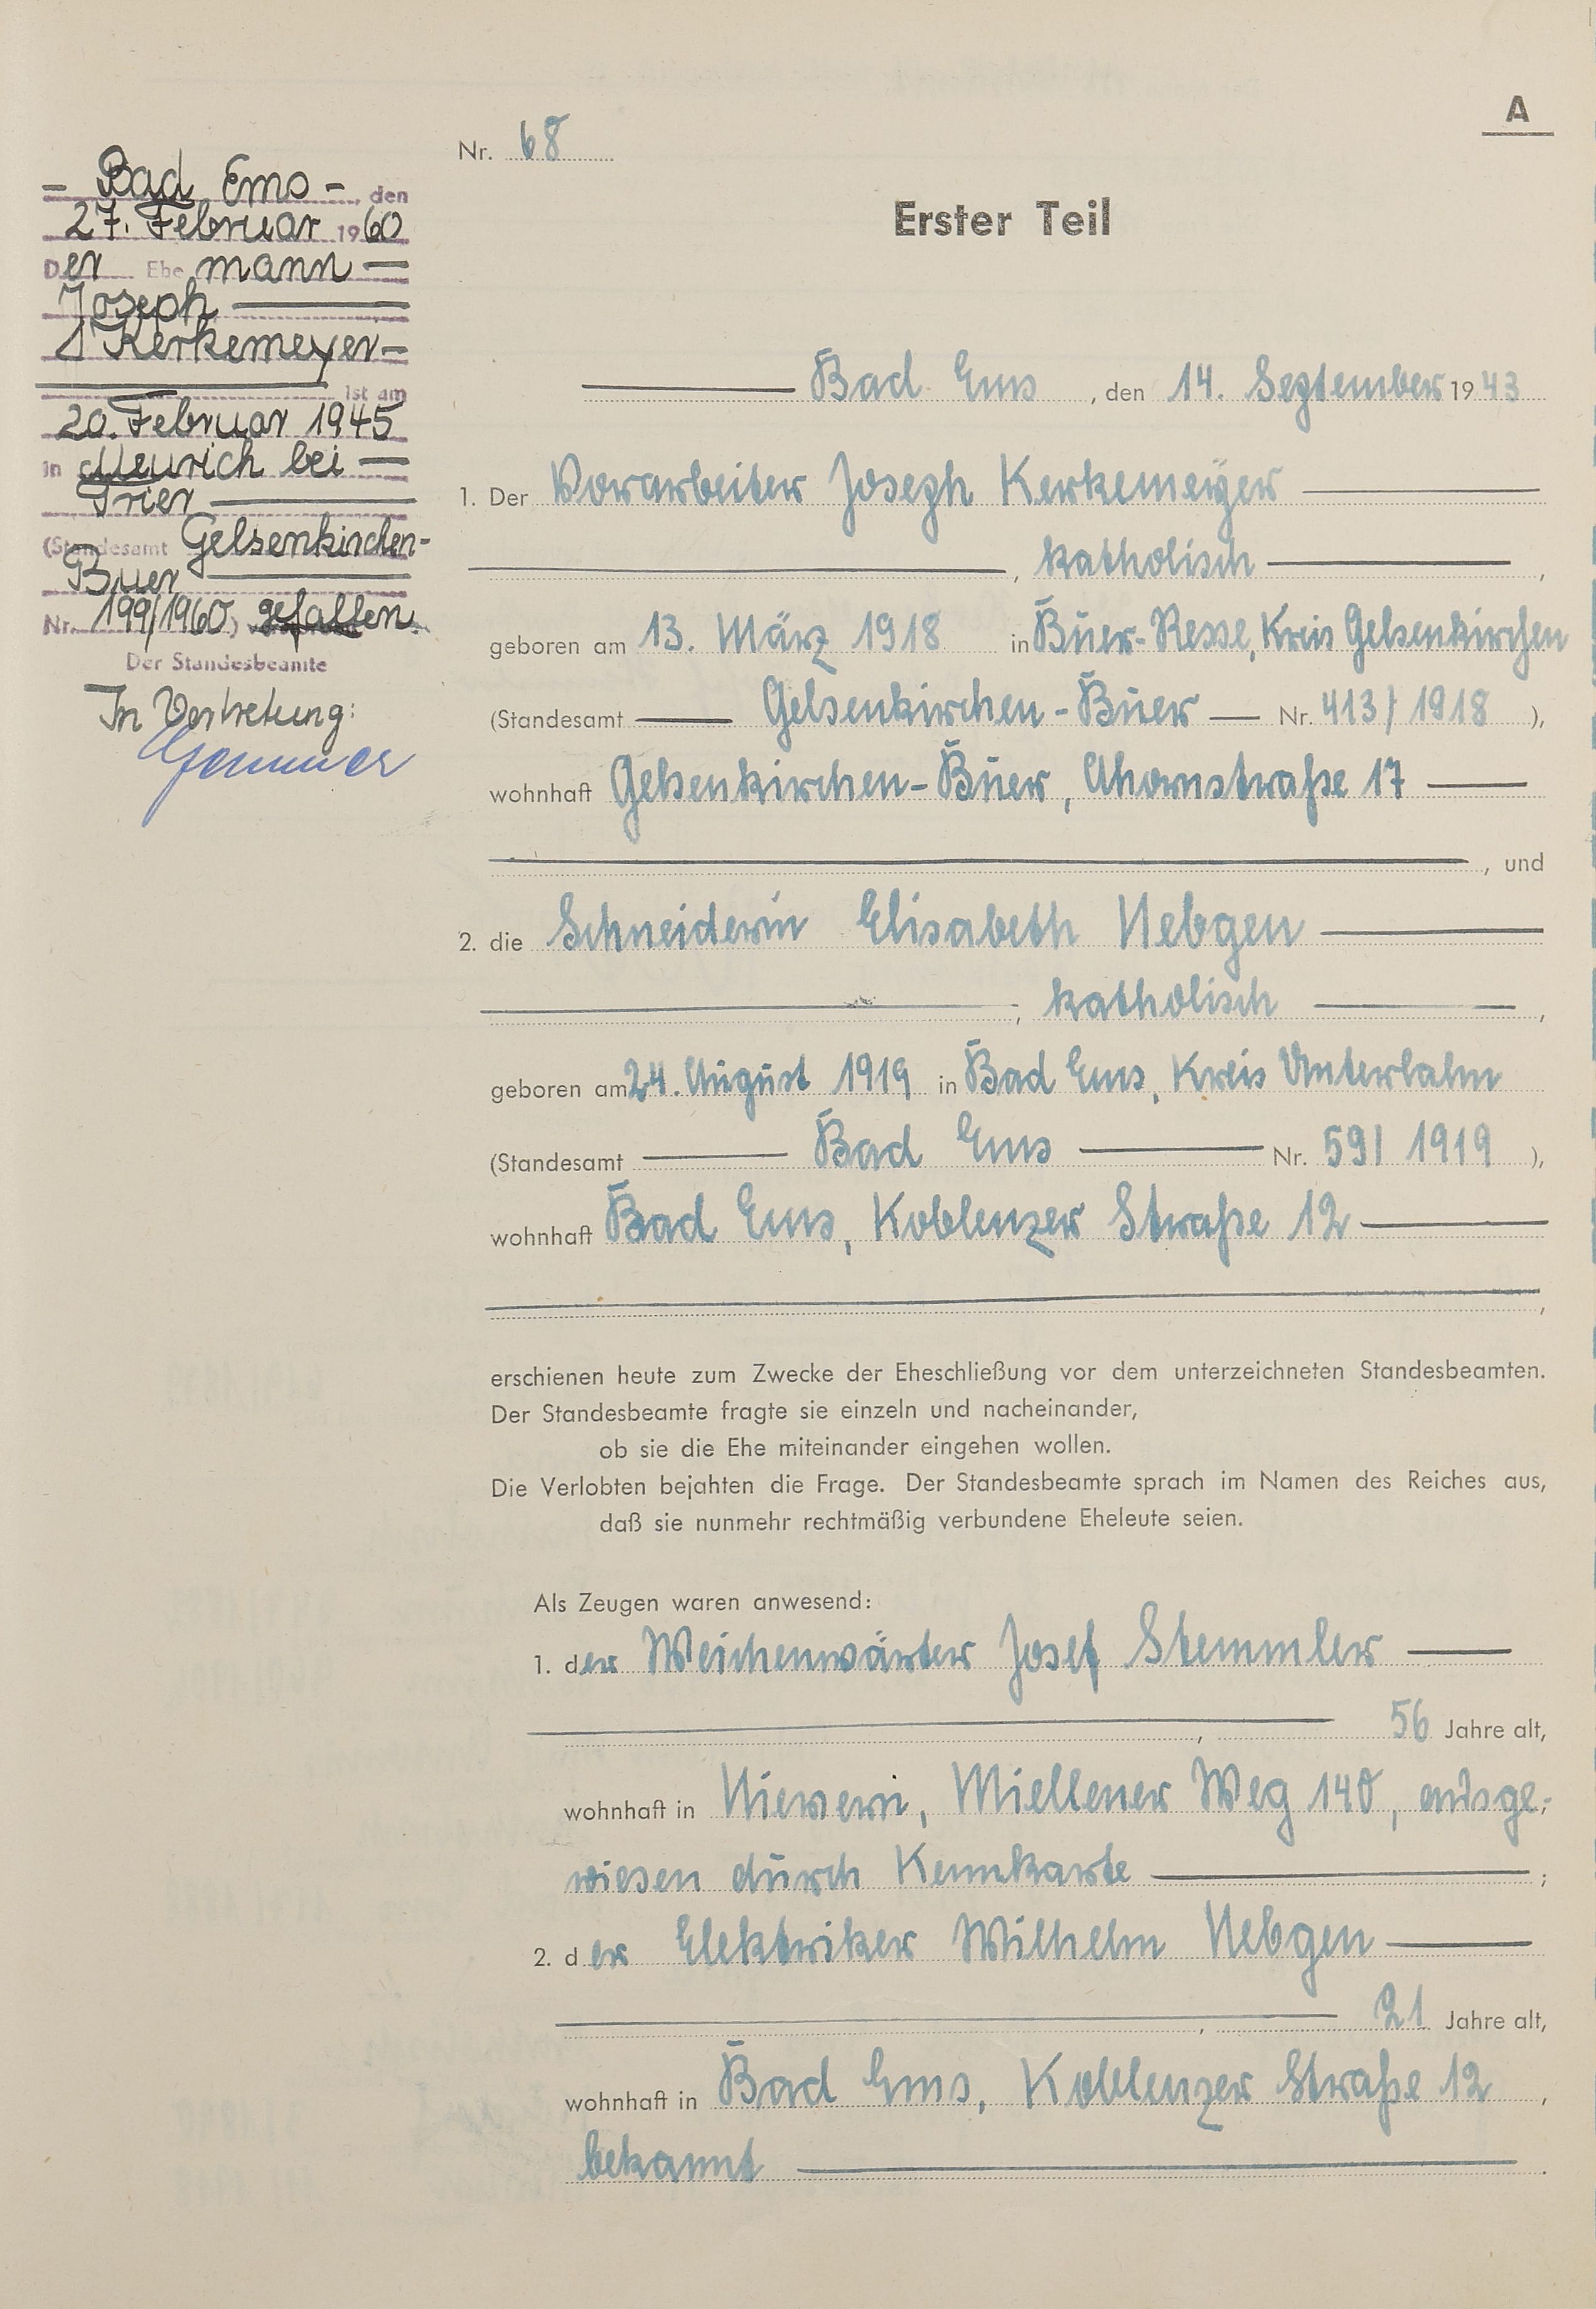 A
Nr. 68
Erster Teil
- Bad Ems -, den
27. Februar 1960
Der Ehemann
Joseph
Kerkemeyer
ist am
20. Februar 1945
in Meurich bei
Trier
(Standesamt Gelsenkirchen-
Buer
Nr. 199/1960) gefallen.
Der Standesbeamte
In Vertretung:
Bad Ems, den 14. September 1943
1. Der Vorarbeiter Joseph Kerkemeyer
, katholisch ,
geboren am 13. März 1918 in Buer-Resse, Kreis Gelsenkirchen
(Standesamt Gelsenkirchen-Buer Nr. 413/1918 ),
wohnhaft Gelsenkirchen-Buer, Ahornstraße 17
, und
2. die Schneiderin Elisabeth Nebgen
, katholisch ,
geboren am 24. August 1919 in Bad Ems, Kreis Unterlahn
(Standesamt Bad Ems Nr. 59/1919 ),
wohnhaft Bad Ems, Koblenzer Straße 12
,
erschienen heute zum Zwecke der Eheschließung vor dem unterzeichneten Standesbeamten.
Der Standesbeamte fragte sie einzeln und nacheinander,
ob sie die Ehe miteinander eingehen wollen.
Die Verlobten bejahten die Frage. Der Standesbeamte sprach im Namen des Reiches aus,
daß sie nunmehr rechtmäßig verbundene Eheleute seien.
Als Zeugen waren anwesend:
1. der Weichenwärter Josef Stemmler
, 56 Jahre alt,
wohnhaft in Nievern, Miellener Weg 140, ausge-
wiesen durch Kennkarte ;
2. der Elektriker Wilhelm Nebgen
, 21 Jahre alt,
wohnhaft in Bad Ems, Koblenzer Straße 12 ,
bekannt .